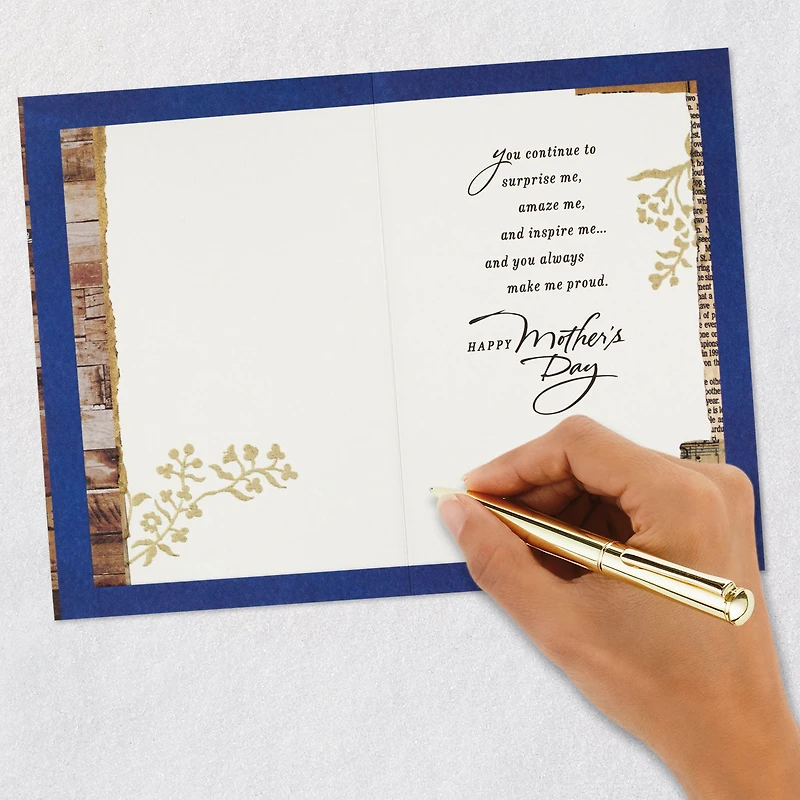 You continue to
surprise me,
amaze me,
and inspire me...
and you always
make me proud.
HAPPY Mother's
Day